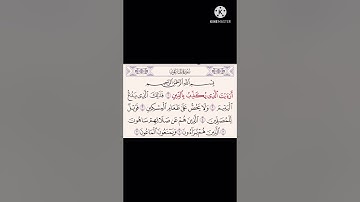 KINEMASTER
بِسْمِ اللَّهِ الرَّحْمَٰنِ الرَّحِيمِ
أَرَءَيْتَ الَّذِي يُكَذِّبُ بِالدِّينِ ۝ فَذَٰلِكَ الَّذِي يَدُعُّ
الْيَتِيمَ ۝ وَلَا يَحُضُّ عَلَىٰ طَعَامِ الْمِسْكِينِ ۝ فَوَيْلٌ
لِّلْمُصَلِّينَ ۝ الَّذِينَ هُمْ عَن صَلَاتِهِمْ سَاهُونَ
۝ الَّذِينَ هُمْ يُرَاءُونَ ۝ وَيَمْنَعُونَ الْمَاعُونَ ۝